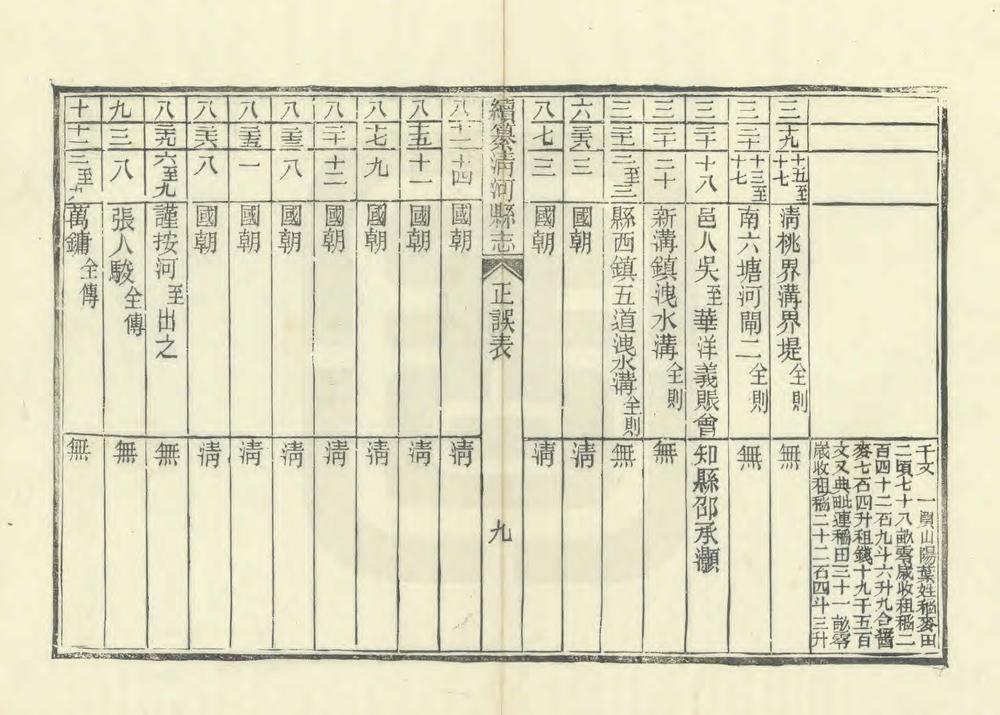 千文 一買山陽葉姓稻麥田
二頃七十八畝零歲收租稻二
百四十二石九斗六升九合
麥七石四升租錢十九千五百
文又典毗連稻田三十一畝零
歲收租稻二十二石四斗三升
三 十九 十五至十七 淸桃界溝界堤全則 無
三 二十 十三至十七 南六塘河閘二全則 無
三 二十 十八 邑人吳至華洋義賬會 知縣邵承灝
三 二十 二十 新溝鎮洩水溝全則 無
三 二十 二至三 縣西鎮五道洩水溝全則 無
六 三 國朝 淸
八 七 三 國朝 淸
續纂淸河縣志 正誤表 九
八 十二 十四 國朝 淸
八 十五 十一 國朝 淸
八 十七 九 國朝 淸
八 二十 十二 國朝 淸
八 二三 八 國朝 淸
八 二五 一 國朝 淸
八 二六 八 國朝 淸
八 二九 六至九 謹按河至出之 無
九 三 八 張人駿全傳 無
十 十二 萬鏞全傳 無